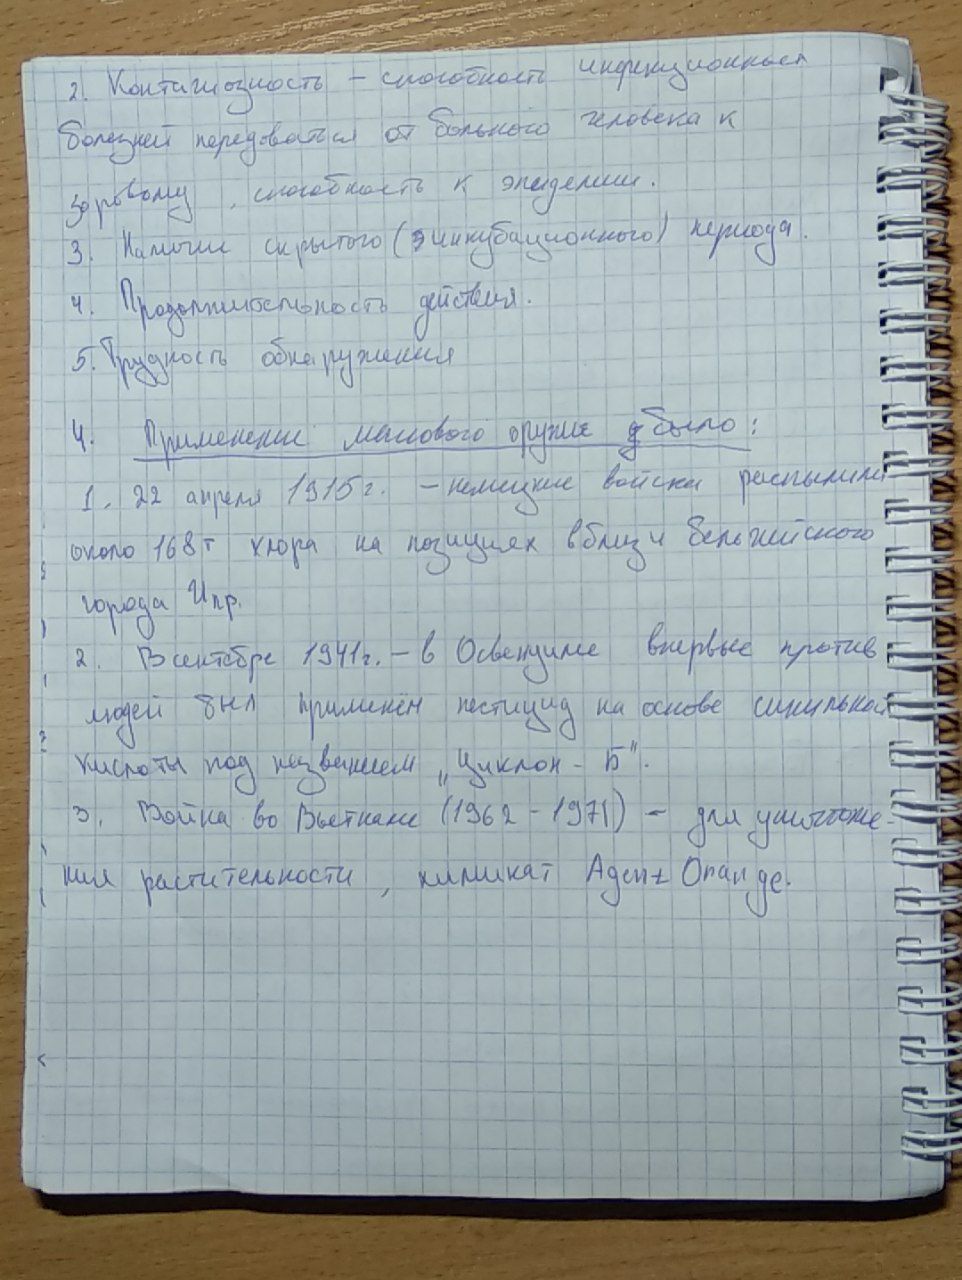 2. Контагиозность – способность инфекционных
болезней передоваться от больного человека к
здоровому, способность к эпидемии.
3. Наличие скрытого (инкубационного) периода.
4. Продолжительность действия.
5. Трудность обнаружения
4. Применение массового оружие было:
1. 22 апреля 1915 г. – немецкие войска распылили
около 168 т хлора на позициях вблизи бельгийского
города Ипр.
2. В сентябре 1941 г. – в Освенциме впервые против
людей был применён пестицид на основе синильной
кислоты под названием „Циклон – Б".
3. Война во Вьетнаме (1962 – 1971) – для уничтоже-
ния растительности, химикат Agent Orange.